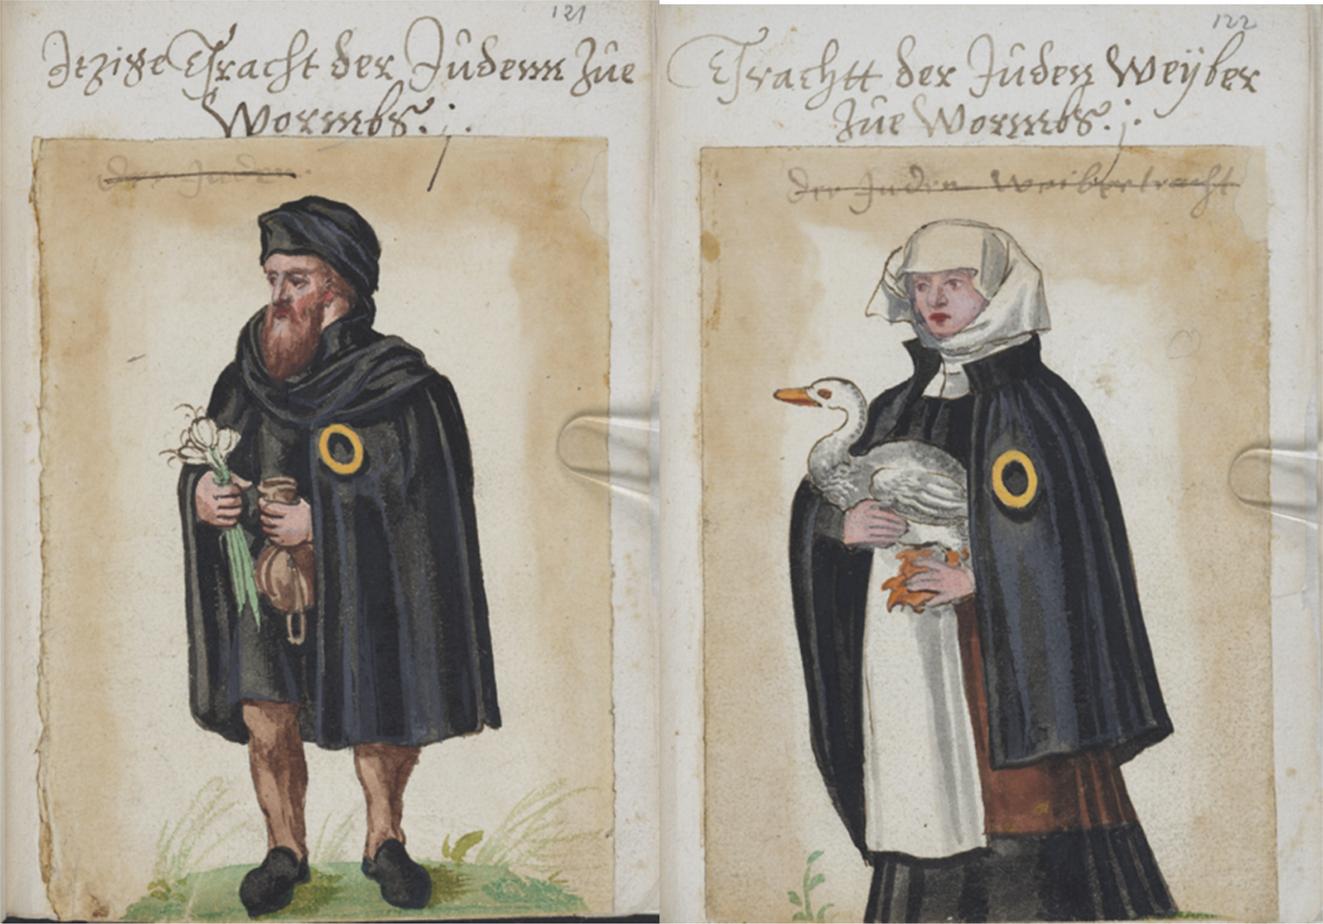 121
Jetzige Tracht der Juden Zue
Wormbs. j.
der Juden
122
Trachtt der Juden Weyber
Zue Wormbs. j.
der Juden Weibertracht